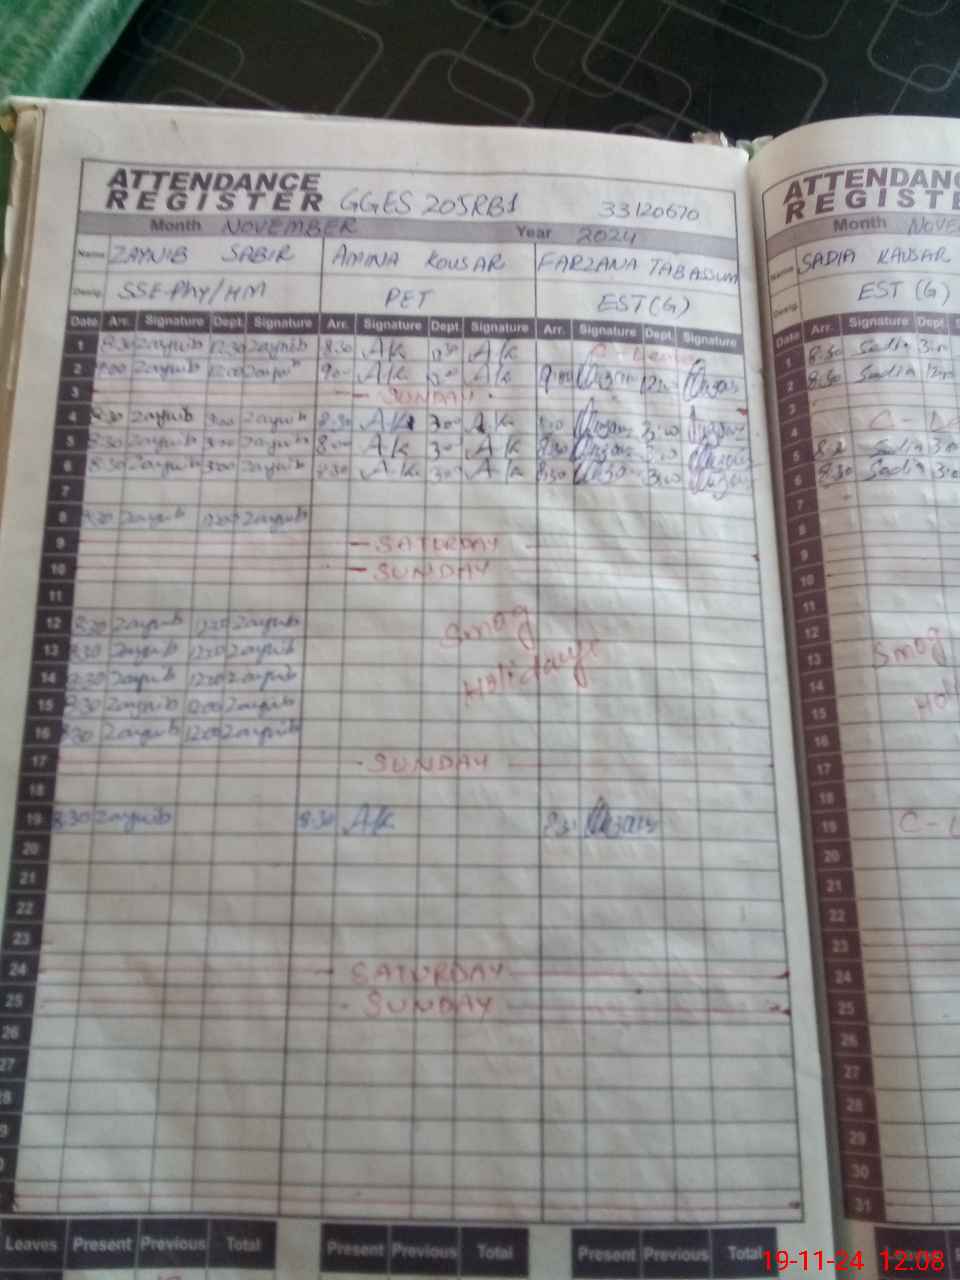 ATTENDANCE
REGISTER GGES 205RB1 33120670
Month NOVEMBER Year 2024
Name ZAYNIB SABIR AMINA KOUSAR FARZANA TABASSUM
Desig. SSE-Phy/HM PET EST(G)
Date Arr. Signature Dept. Signature Arr. Signature Dept. Signature Arr. Signature Dept. Signature
1 8:30 Zaynib 12:30 Zaynib 8:30 AK AK C-Leave
2 9:00 Zaynib 12:00 Zaynib AK AK
3 SUNDAY
4 8:30 Zaynib 3:00 Zaynib 8:30 AK 3:00 AK
5 8:30 Zaynib 3:00 Zaynib AK AK
6 8:30 Zaynib 3:00 Zaynib 8:30 AK AK
7
8 8:30 Zaynib Zaynib
9 SATURDAY
10 SUNDAY
11
12 8:30 Zaynib Zaynib Smog
13 8:30 Zaynib Zaynib
14 8:30 Zaynib Zaynib Holidays
15 8:30 Zaynib 12:00 Zaynib
16 8:30 Zaynib 12:00 Zaynib
17 SUNDAY
18
19 8:30 Zaynib 8:30 AK
20
21
22
23
24 SATURDAY
25 SUNDAY
26
27
Leaves Present Previous Total Present Previous Total Present Previous Total
ATTENDANC
REGISTE
Month NOVE
Name SADIA KAUSAR
Desig. EST (G)
Date Arr. Signature Dept. S
1 8:30 Sadia
2 8:30 Sadia
3
4
5 Sadia
6 8:30 Sadia
7
8
9
10
11
12
13 Smog
14
15
16
17
18
19
20
21
22
23
24
25
26
27
28
29
30
31
Leaves
19-11-24 12:08